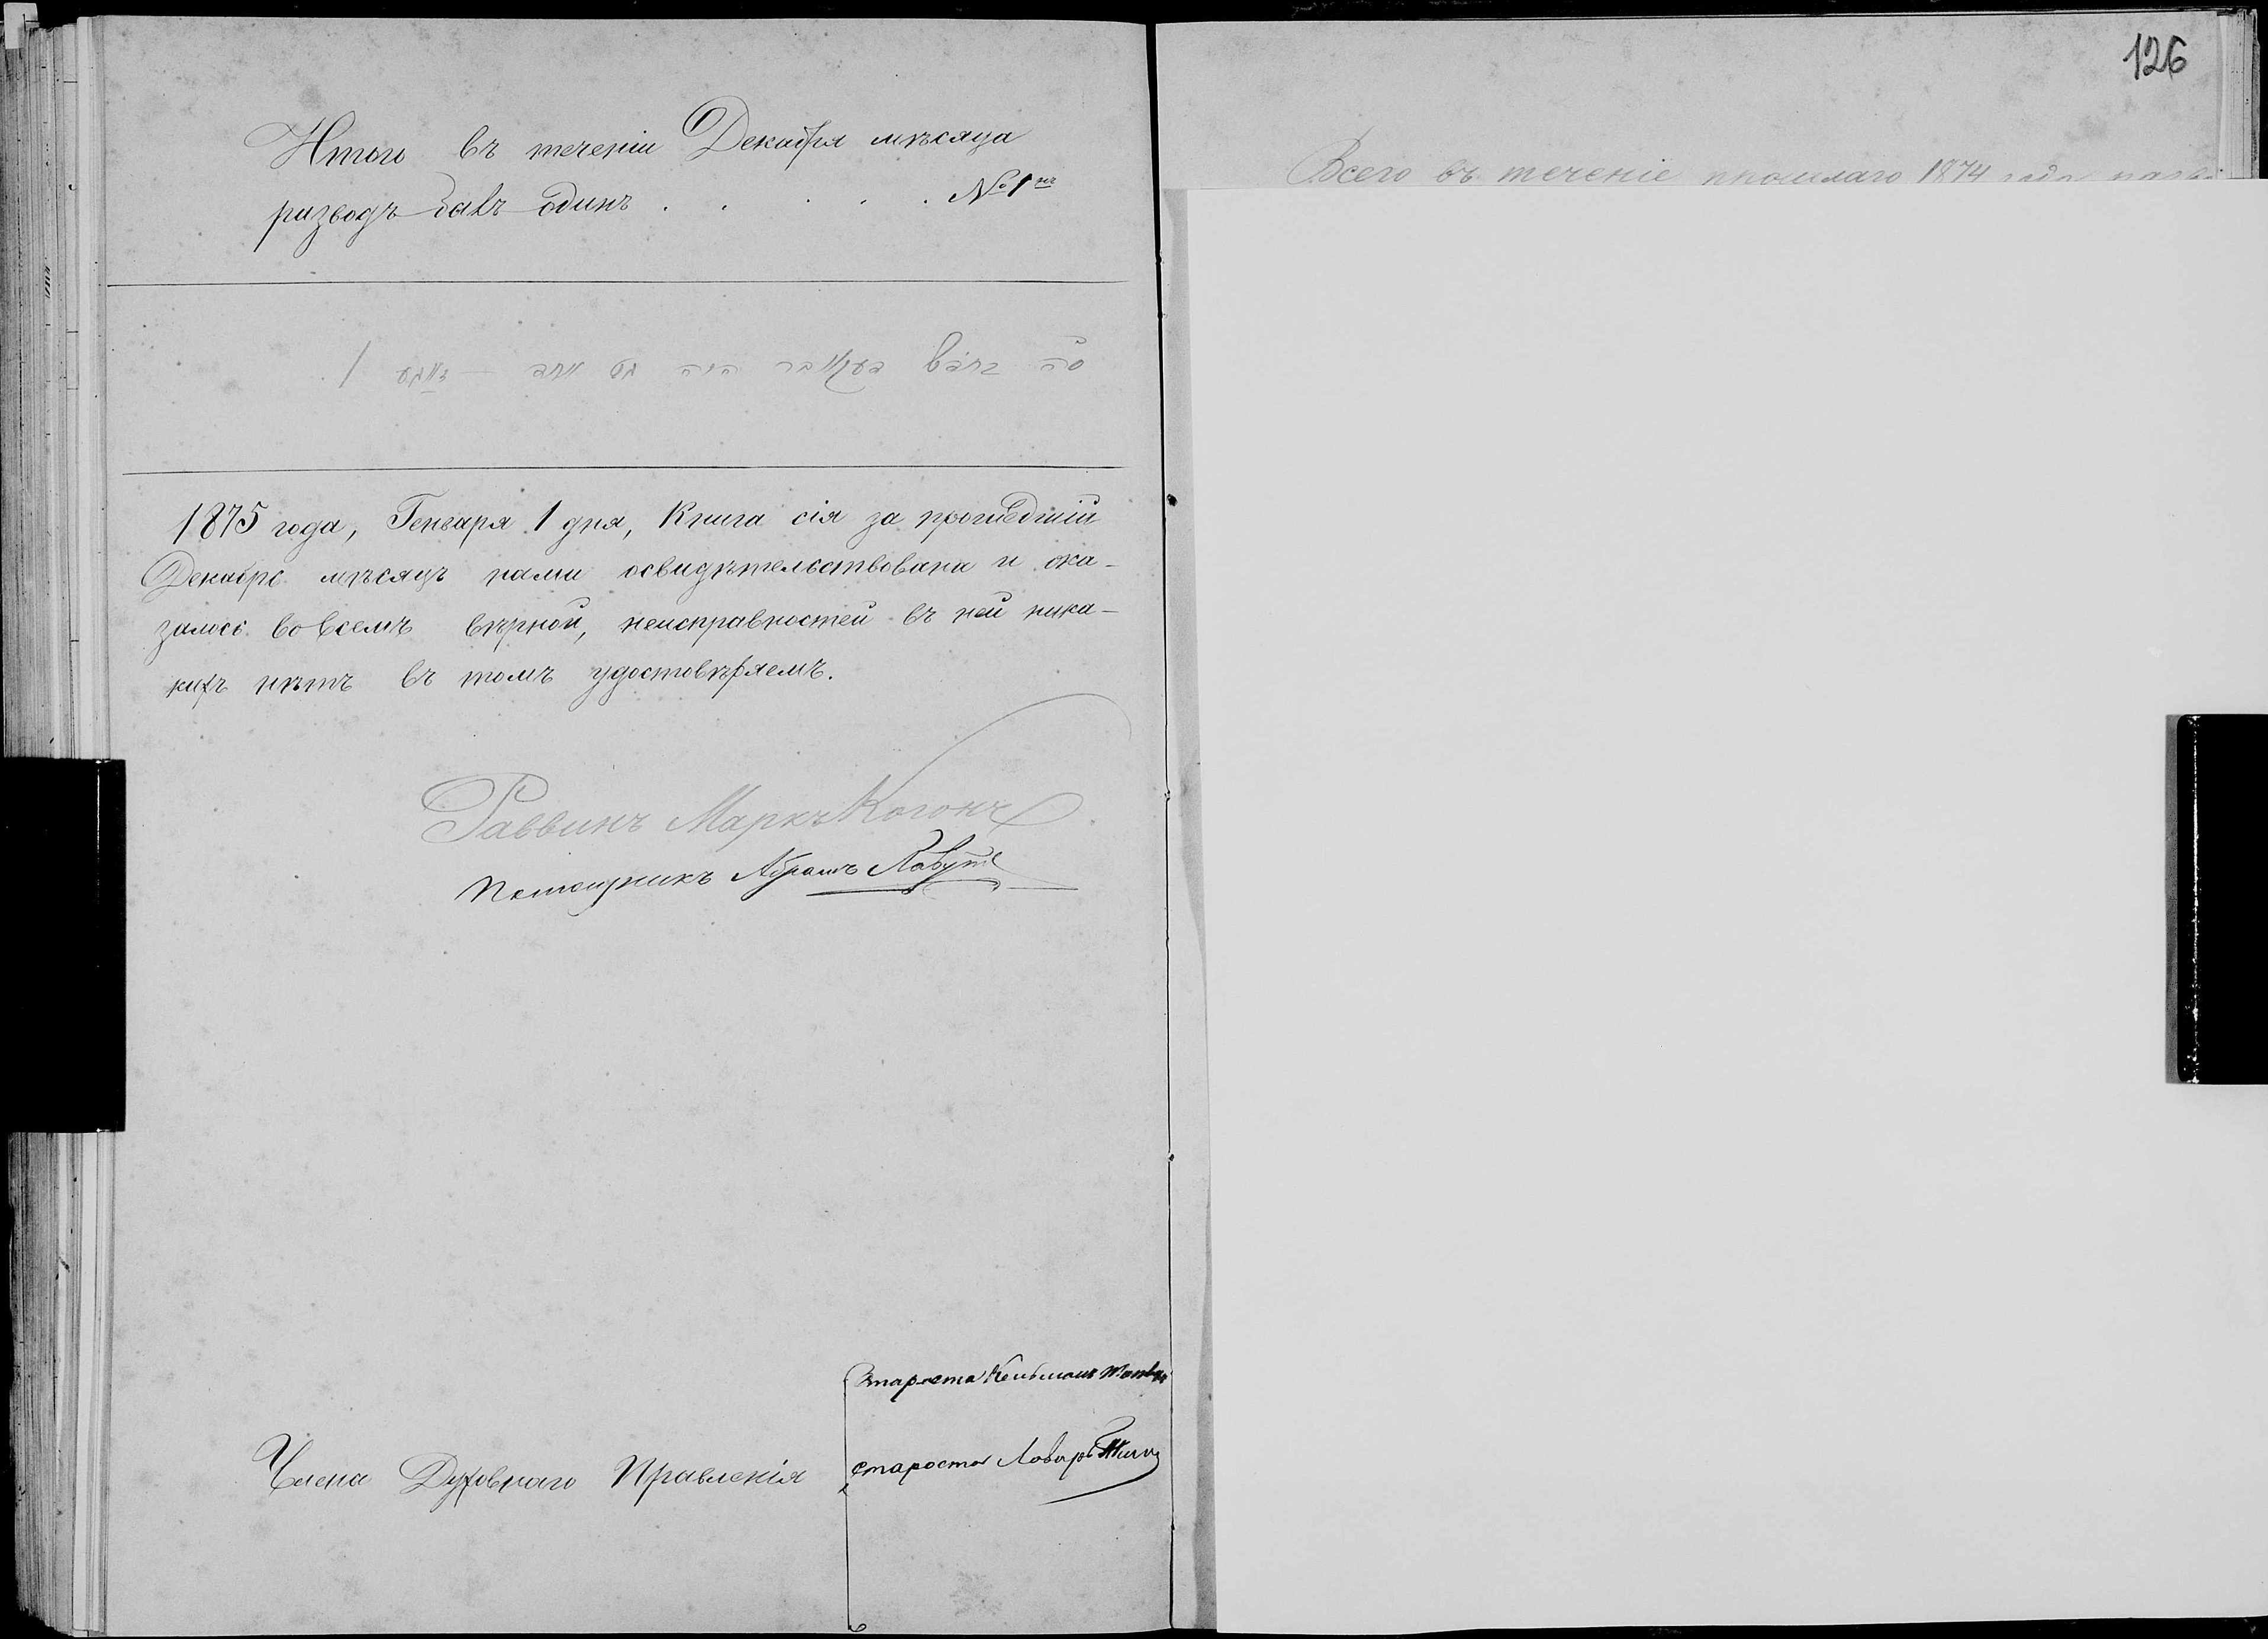 126
Итого въ теченіи Декабря мѣсяца
разводъ былъ одинъ . . . . . № 1й
1875 года, Генваря 1 дня, Книга сія за прошедшій
Декабрь мѣсяцъ нами освидѣтельствована и ока-
залось во всемъ вѣрной, неисправностей въ ней ника-
кихъ нѣтъ въ томъ удостовѣряемъ.
Раввинъ Маркъ Когонъ
Помощникъ Абрамъ
Староста Кельманъ
Члена Духовнаго Правленія
староста
Всего въ теченіе прошлаго 1874 года